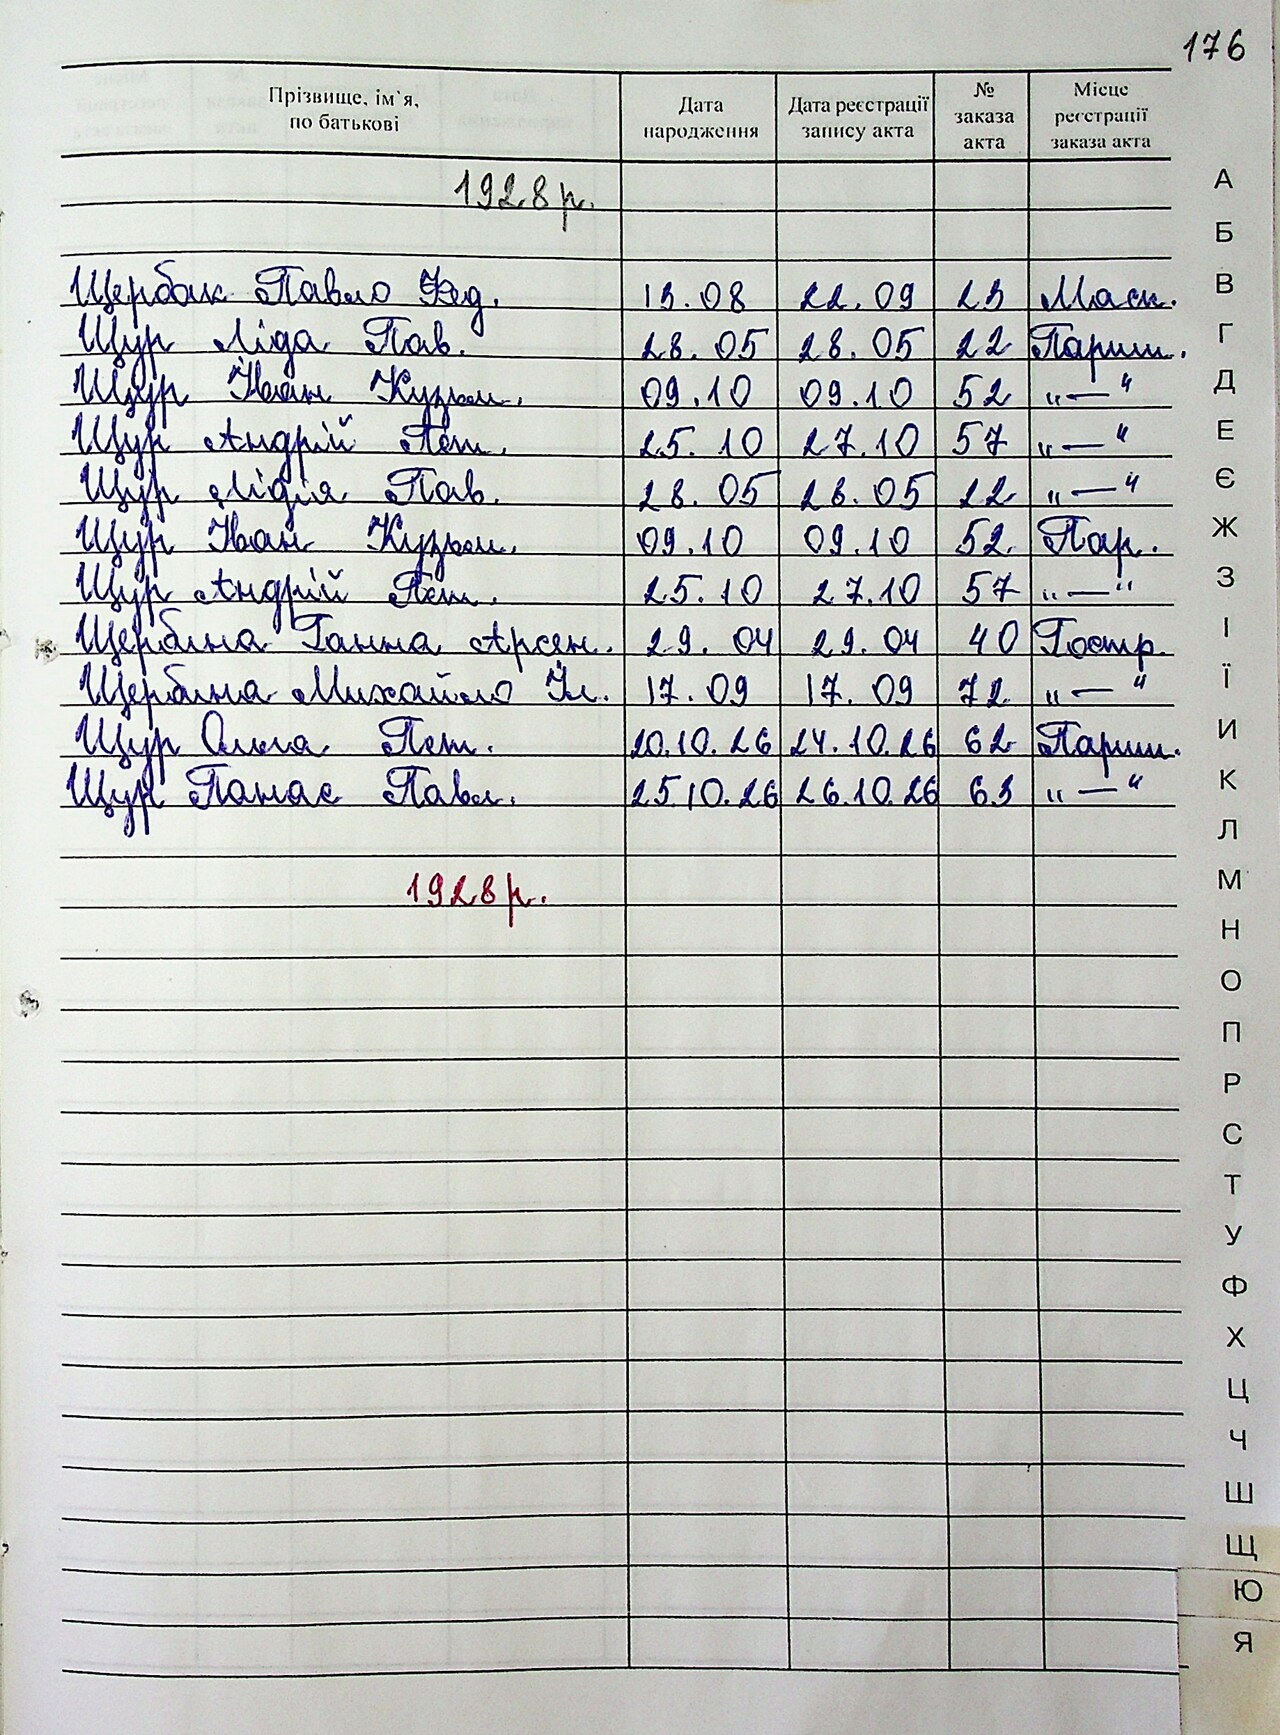 176
Прізвище, ім`я, по батькові Дата народження Дата реєстрації запису акта № заказа акта Місце реєстрації заказа акта
1928 р.
Щербак Павло Фед. 13.08 22.09 23 Маск.
Щур Ліда Пав. 28.05 28.05 22 Париш.
Щур Іван Кузьм. 09.10 09.10 52 „—“
Щур Андрій Пет. 25.10 27.10 57 „—“
Щур Лідія Пав. 28.05 28.05 22 „—“
Щур Іван Кузьм. 09.10 09.10 52 Пар.
Щур Андрій Пет. 25.10 27.10 57 „—“
Щербина Ганна Арсен. 29.04 29.04 40 Гостр.
Щербина Михайло Іл. 17.09 17.09 72 „—“
Щур Ольга Пет. 20.10.26 24.10.26 62 Париш.
Щур Панас Павл. 25.10.26 26.10.26 63 „—“
1928 р.
А
Б
В
Г
Д
Е
Є
Ж
З
І
Ї
И
К
Л
М
Н
О
П
Р
С
Т
У
Ф
Х
Ц
Ч
Ш
Щ
Ю
Я